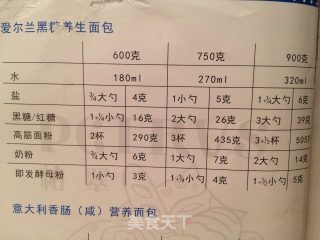 爱尔兰黑糖养生面包
600克 750克 900克
水 180ml 270ml 320ml
盐 ¾大勺 4克 1小勺 5克 1+¼大勺 6克
黑糖/红糖 1+¼小勺 16克 2大勺 26克 3大勺 39克
高筋面粉 2杯 290克 3杯 435克 3+½杯 505克
奶粉 ¾大勺 6克 1大勺 7克 2大勺 14克
即发酵母粉 1小勺 3克 1+½小勺 4克 1+½小勺 5克
意大利香肠（咸）营养面包
美食天下